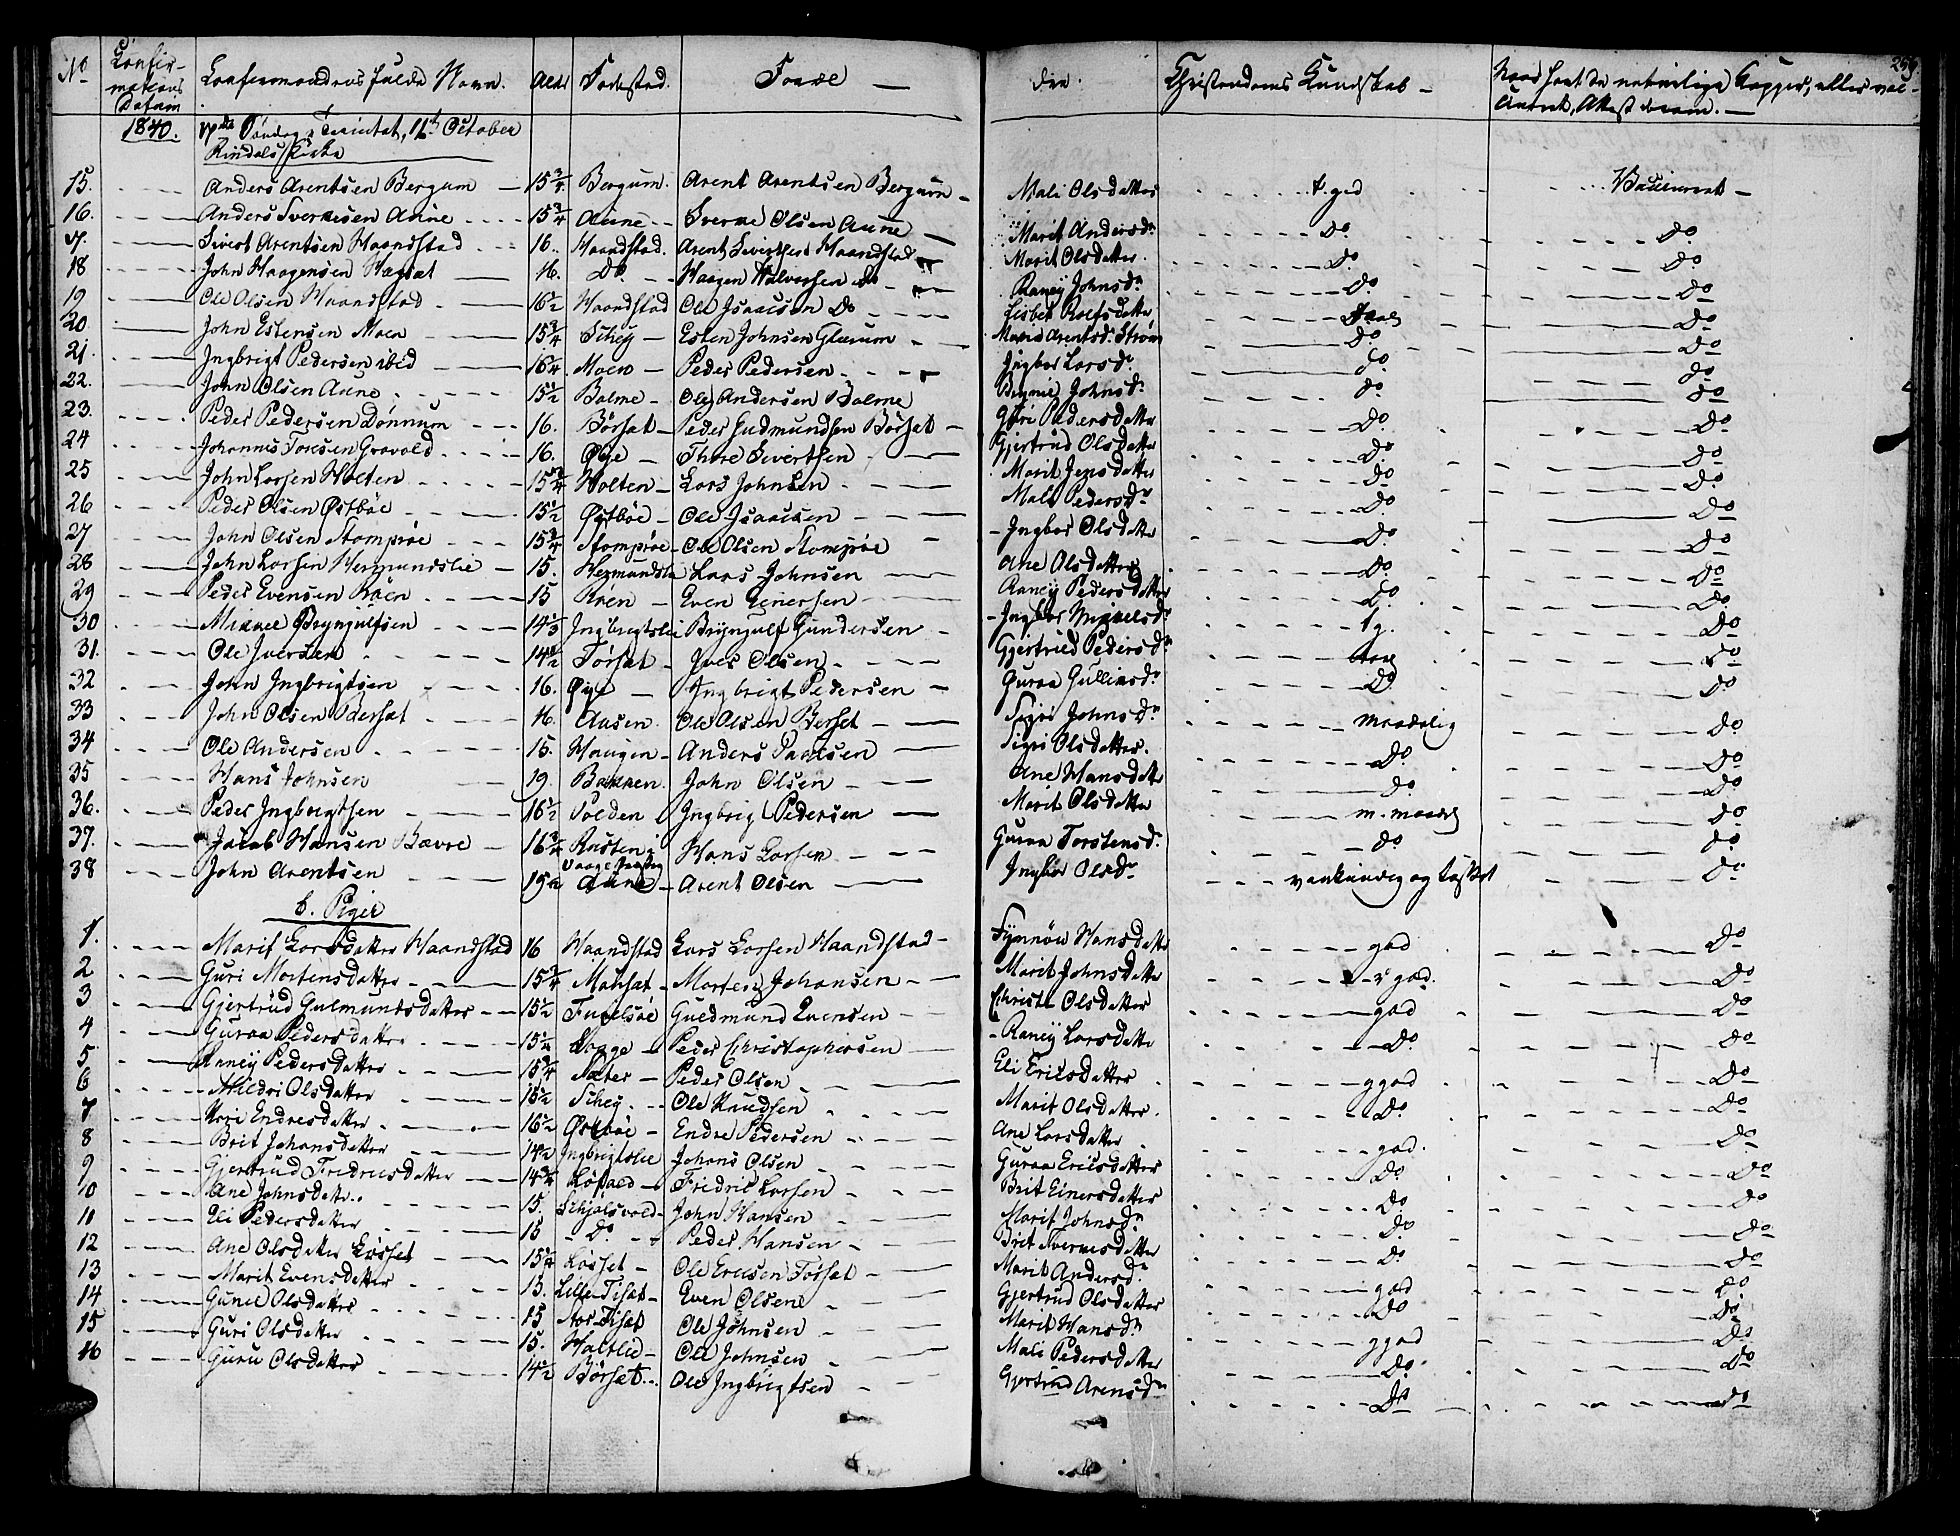 259
No Confirmations Datum Confirmandens fulde Navn. Alder Fødested. Foræl— dre Christendoms Kundskab — Naar havt de naturlige Kopper, eller vac-
cineret, Attest derom. —
1840. 17de Søndag Trinitat, 11te October
Rindals Kirke
15. Anders Arentsen Bergum — 15 3/4 Bergum. Arent Arentsen Bergum — Mali Olsdatter t. god Vaccineret —
16. Anders Sversen Aune 15 3/4 Aune Olsen Aune — Marit Andersdr Do Do
17. Sivert Arentsen Haandstad 16. Haandstad. Arent Sivertsen Haandstad Marit Olsdatter Do. Do
18 John Haagensen 16. Do. Haagen Halvorsen do Raney Johnsdr Do Do
19 Ole Olsen Haandstad 16 1/2 Haandstad Ole Isaacsen Do Lisbet Rolfsdatter Do
20 John Estensen Moen 15 3/4 Schey — Esten Johnsen Glærum Marit Arentsdr Strøm Do Do
21. Ingbrigt Pedersen ibid 16 1/4 Moen — Peder Pedersen Ingbor Larsdr Do Do
22. John Olsen Aune 15 1/2 Bolme — Ole Andersen Bolme Johnsdr Do Do
23. Peder Pedersen Dønnum 16. Børset — Peder Gudmundsen Børset — Guri Pedersdatter Do Do
24 Johannes Toresen Grovold 16. Øye — Thore Sivertsen Gjertrud Olsdatter Do Do
25 John Larsen Holten 15 3/4 Holten — Lars Johnsen Marit Jensdatter Do Do
26 Peder Olsen Østbøe 15 1/2 Østbøe — Ole Isaacsen Mali Pedersdr Do Do
27 John Olsen Stomprøe 15 3/4 Stomprøe — Ole Olsen Stomprøe Ingbor Olsdatter Do Do
28 John Larsen Hermundslie — 15. Hermundslie Lars Johnsen Ane Olsdatter Do Do
29 Peder Evensen Røen 15 Røen — Even Einersen Raney Pedersdatter Do. Do
30 Mikkel Brynjulfsen 14 1/3 Ingbrigtslie Brynjulf Gundersen Ingbor Mikkelsdr tg. Do
31. Ole Iversen 14 1/2 Tørset — Iver Olsen Gjertrud Pedersdr Do
32 John Ingbrigtsen 16. Øye — Ingbrigt Pedersen — Guraa Gulliksdr Do. Do
33 John Olsen Børset 16. Aasen. Ole Olsen Børset Sigri Johnsdr maadelig Do
34 Ole Andersen 15. Haugen — Anders Paulsen Sigri Olsdatter. Do. Do
35 Hans Johnsen 19. Bakken. John Olsen Ane Hansdatter Do Do
36. Peder Ingbrigtsen 16 1/2 Volden Ingbrigt Pedersen Marit Olsdatter m. maad Do
37. Jacob Hansen Bævre — 16 3/4 Rusten i Hans Larsen Guraa Torstensdr Do Do
38 John Arentsen 19 1/2 Aune — Arent Olsen Ingbor Olsdr vankundig og Do
b. Piger
1. Marit Larsdatter Haandstad 16 Haandstad Lars Larsen Haandstad — Synnøv Hansdatter god Do
2 Guri Mortensdatter 15 3/4 — Morten Johansen Marit Johnsdatter god. Do
3 Gjertrud Gulmundsdatter 15 1/2 Fuglsøe Guldmund Evensen Christi Olsdatter god Do
4 Guraa Pedersdatter 15 1/2 Vaage — Peder Christophersen Raney Larsdatter Do. Do
5 Raney Pedersdatter 15 3/4 Sæter — Peder Olsen Eli Ericsdatter ggod Do
6 Mildri Olsdatter 15 1/2 Schey Ole Knudsen Marit Olsdatter Do. Do
7 Kari Endresdatter 16 1/2 Østbøe — Endre Pedersen Ane Larsdatter god. Do
8 Brit Johansdatter 14 1/2 Ingbrigtslie Johans Olsen Guraa Ericsdatter Do Do
9 Gjertrud Fredricsdatter 14 3/4 Løfald — Fredric Larsen Brit Einersdatter Do Do
10 Ane Johnsdatter 15. Schjølsvold — John Hansen Marit Johnsdr Do. Do
11 Eli Pedersdatter 15 Do. Peder Hansen Brit Sversdatter Do Do
12 Ane Olsdatter Løsset 15 3/4 Løsset — Ole Ericsen Tørset Marit Andersdr god Do
13 Marit Evensdatter 15. Lille Tiset — Even Olsen Gjertrud Olsdatter Do Do
14 Gunel Olsdatter 15 Stor Tiset Ole Johnsen Marit Hansdr ggod Do
15 Guri Olsdatter 15. Haltlie — Ole Johnsen Mali Pedersdatter Do. Do
16 Guru Olsdatter 14 1/2 Børset Ole Ingbrigtsen Gjertrud Arensdr Do Do